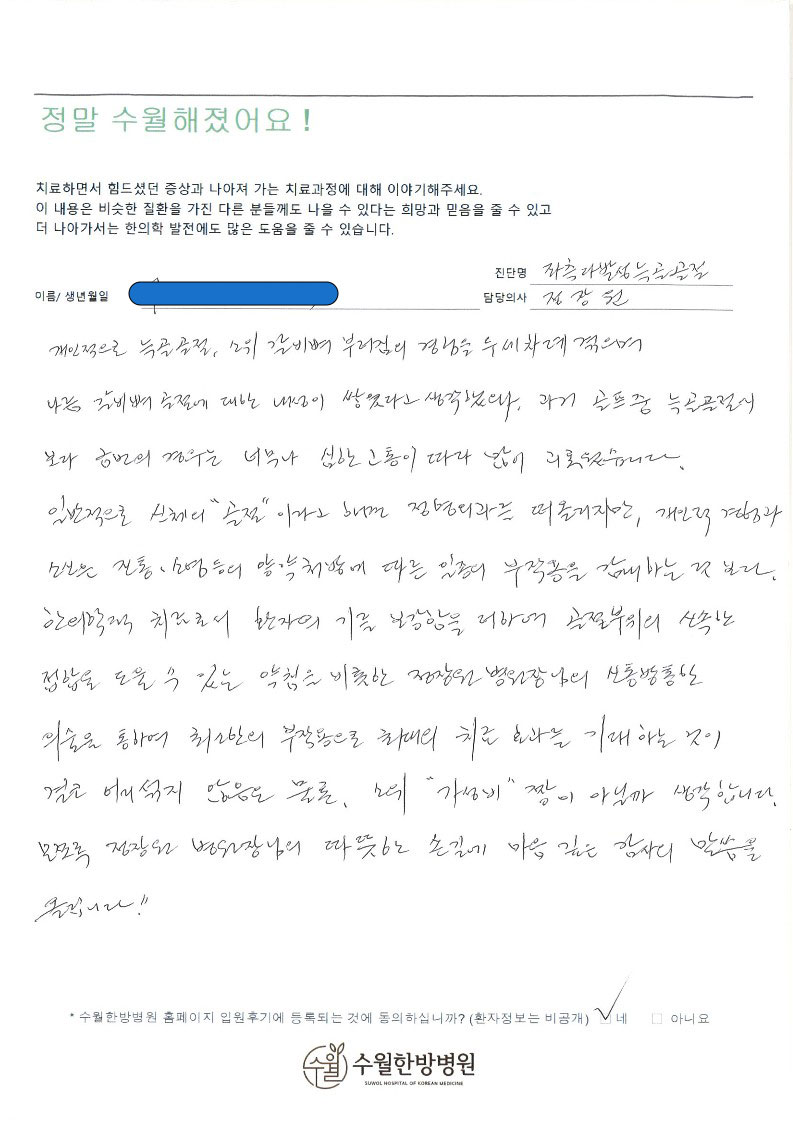 정말 수월해졌어요!
치료하면서 힘드셨던 증상과 나아져 가는 치료과정에 대해 이야기해주세요.
이 내용은 비슷한 질환을 가진 다른 분들께도 나을 수 있다는 희망과 믿음을 줄 수 있고
더 나아가서는 한의학 발전에도 많은 도움을 줄 수 있습니다.
진단명 좌측다발성늑골골절
이름/ 생년월일
담당의사 정장원
개인적으로 늑골골절, 소위 갈비뼈 부러짐의 경험을 두세차례 겪으며
나름 갈비뼈 골절에 대한 내성이 쌓였다고 생각했으나, 과거 골프중 늑골골절시
보다 금번의 경우는 너무나 심한 고통이 따라 많이 괴로웠습니다.
일반적으로 신체의 "골절"이라고 하면 정형외과를 떠올리지만, 개인적 경험과
소견은 진통·소염등의 양약처방에 따른 일종의 부작용을 감내하는 것 보다,
한의학적 치료로서 환자의 기를 보강함을 더하여 골절부위의 신속한
접합을 도울 수 있는 약침을 비롯한 정장원 병원장님의 신통방통한
의술을 통하여 최소한의 부작용으로 최대의 치료 효과를 기대하는 것이
결코 어리석지 않음은 물론, 소위 "가성비" 짱이 아닐까 생각합니다.
모쪼록 정장원 병원장님의 따뜻한 손길에 마음 깊은 감사의 말씀을
올립니다!!
* 수월한방병원 홈페이지 입원후기에 등록되는 것에 동의하십니까? (환자정보는 비공개) ☑ 네 □ 아니요
수월 수월한방병원
SUWOL HOSPITAL OF KOREAN MEDICINE